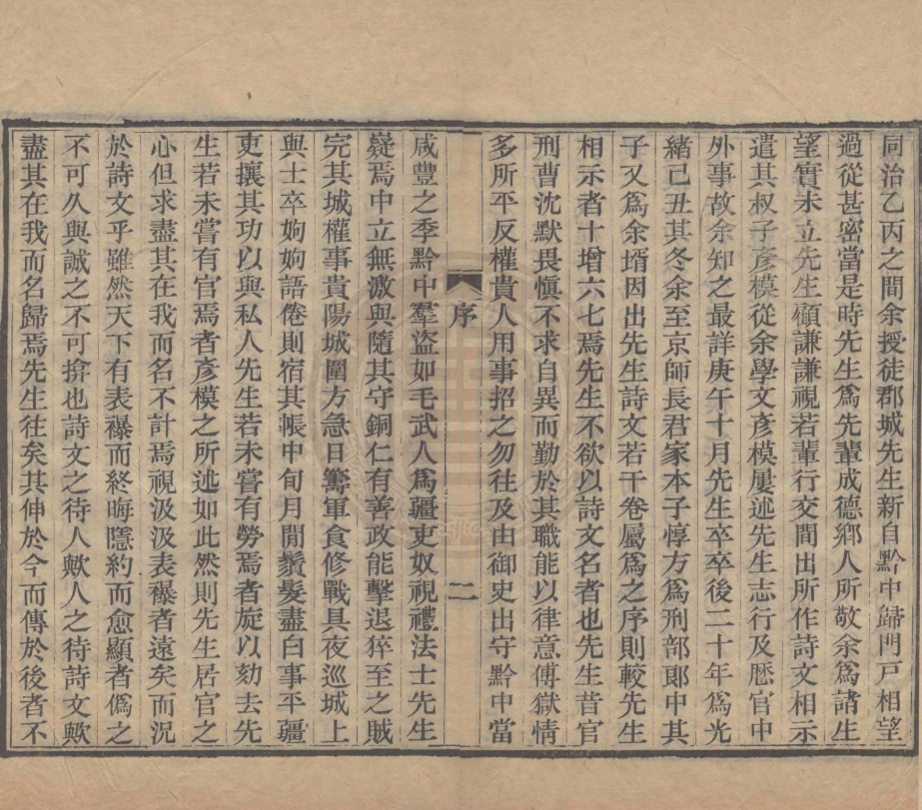 同治乙丙之間余授徒郡城先生新自黔中歸門戸相望
過從甚密當是時先生爲先輩成德鄉人所敬余爲諸生
望實未立先生顧謙謙視若輩行交間出所作詩文相示
遣其叔子彥模從余學文彥模屢述先生志行及歷官中
外事故余知之最詳庚午十月先生卒卒後二十年爲光
緒己丑其冬余至京師長君家本子惇方爲刑部郞中其
子又爲余壻因出先生詩文若干卷屬爲之序則較先生
相示者十增六七焉先生不欲以詩文名者也先生昔官
刑曹沈默畏愼不求自異而勤於其職能以律意傅獄情
多所平反權貴人用事招之勿往及由御史出守黔中當
序
二
咸豐之季黔中羣盜如毛武人爲疆吏奴視禮法士先生
嶷焉中立無激與隨其守銅仁有善政能擊退猝至之賊
完其城權事貴陽城圍方急日籌軍食修戰具夜巡城上
與士卒姁姁語倦則宿其帳中旬月閒鬚髮盡白事平疆
吏攘其功以與私人先生若未嘗有勞焉者旋以劾去先
生若未嘗有官焉者彥模之所述如此然則先生居官之
心但求盡其在我而名不計焉視汲汲表襮者遠矣而況
於詩文乎雖然天下有表襮而終晦隱約而愈顯者僞之
不可久與誠之不可揜也詩文之待人歟人之待詩文歟
盡其在我而名歸焉先生往矣其伸於今而傳於後者不